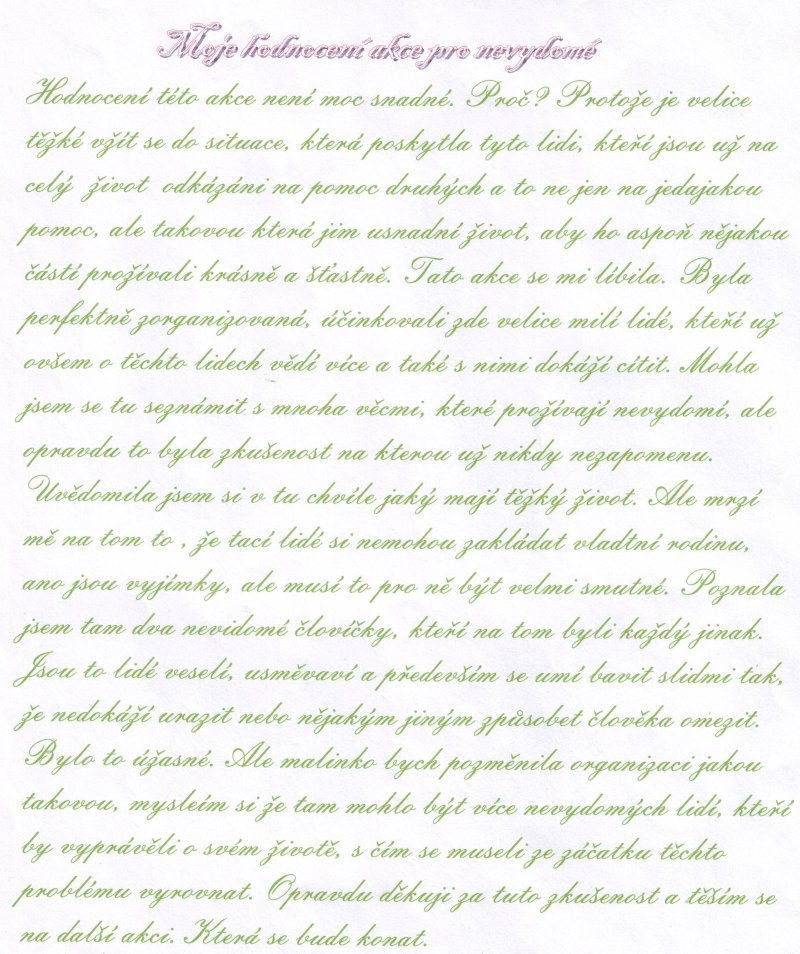 Moje hodnocení akce pro nevydomé
Hodnocení této akce není moc snadné. Proč? Protože je velice
těžké vžít se do situace, která poskytla tyto lidi, kteří jsou už na
celý život odkázáni na pomoc druhých a to ne jen na jedajakou
pomoc, ale takovou která jim usnadní život, aby ho aspoň nějakou
částí prožívali krásně a šťastně. Tato akce se mi líbila. Byla
perfektně zorganizovaná, účinkovali zde velice milí lidé, kteří už
ovšem o těchto lidech vědí více a také s nimi dokáží cítit. Mohla
jsem se tu seznámit s mnoha věcmi, které prožívají nevydomí, ale
opravdu to byla zkušenost na kterou už nikdy nezapomenu.
Uvědomila jsem si v tu chvíle jaký mají těžký život. Ale mrzí
mě na tom to , že tací lidé si nemohou zakládat vladtní rodinu,
ano jsou vyjímky, ale musí to pro ně být velmi smutné. Poznala
jsem tam dva nevidomé človíčky, kteří na tom byli každý jinak.
Jsou to lidé veselí, usměvaví a především se umí bavit slidmi tak,
že nedokáží urazit nebo nějakým jiným způsobet člověka omezit.
Bylo to úžasné. Ale malinko bych pozměnila organizaci jakou
takovou, mysleím si že tam mohlo být více nevydomých lidí, kteří
by vyprávěli o svém životě, s čím se museli ze záčatku těchto
problému vyrovnat. Opravdu děkuji za tuto zkušenost a těším se
na další akci. Která se bude konat.